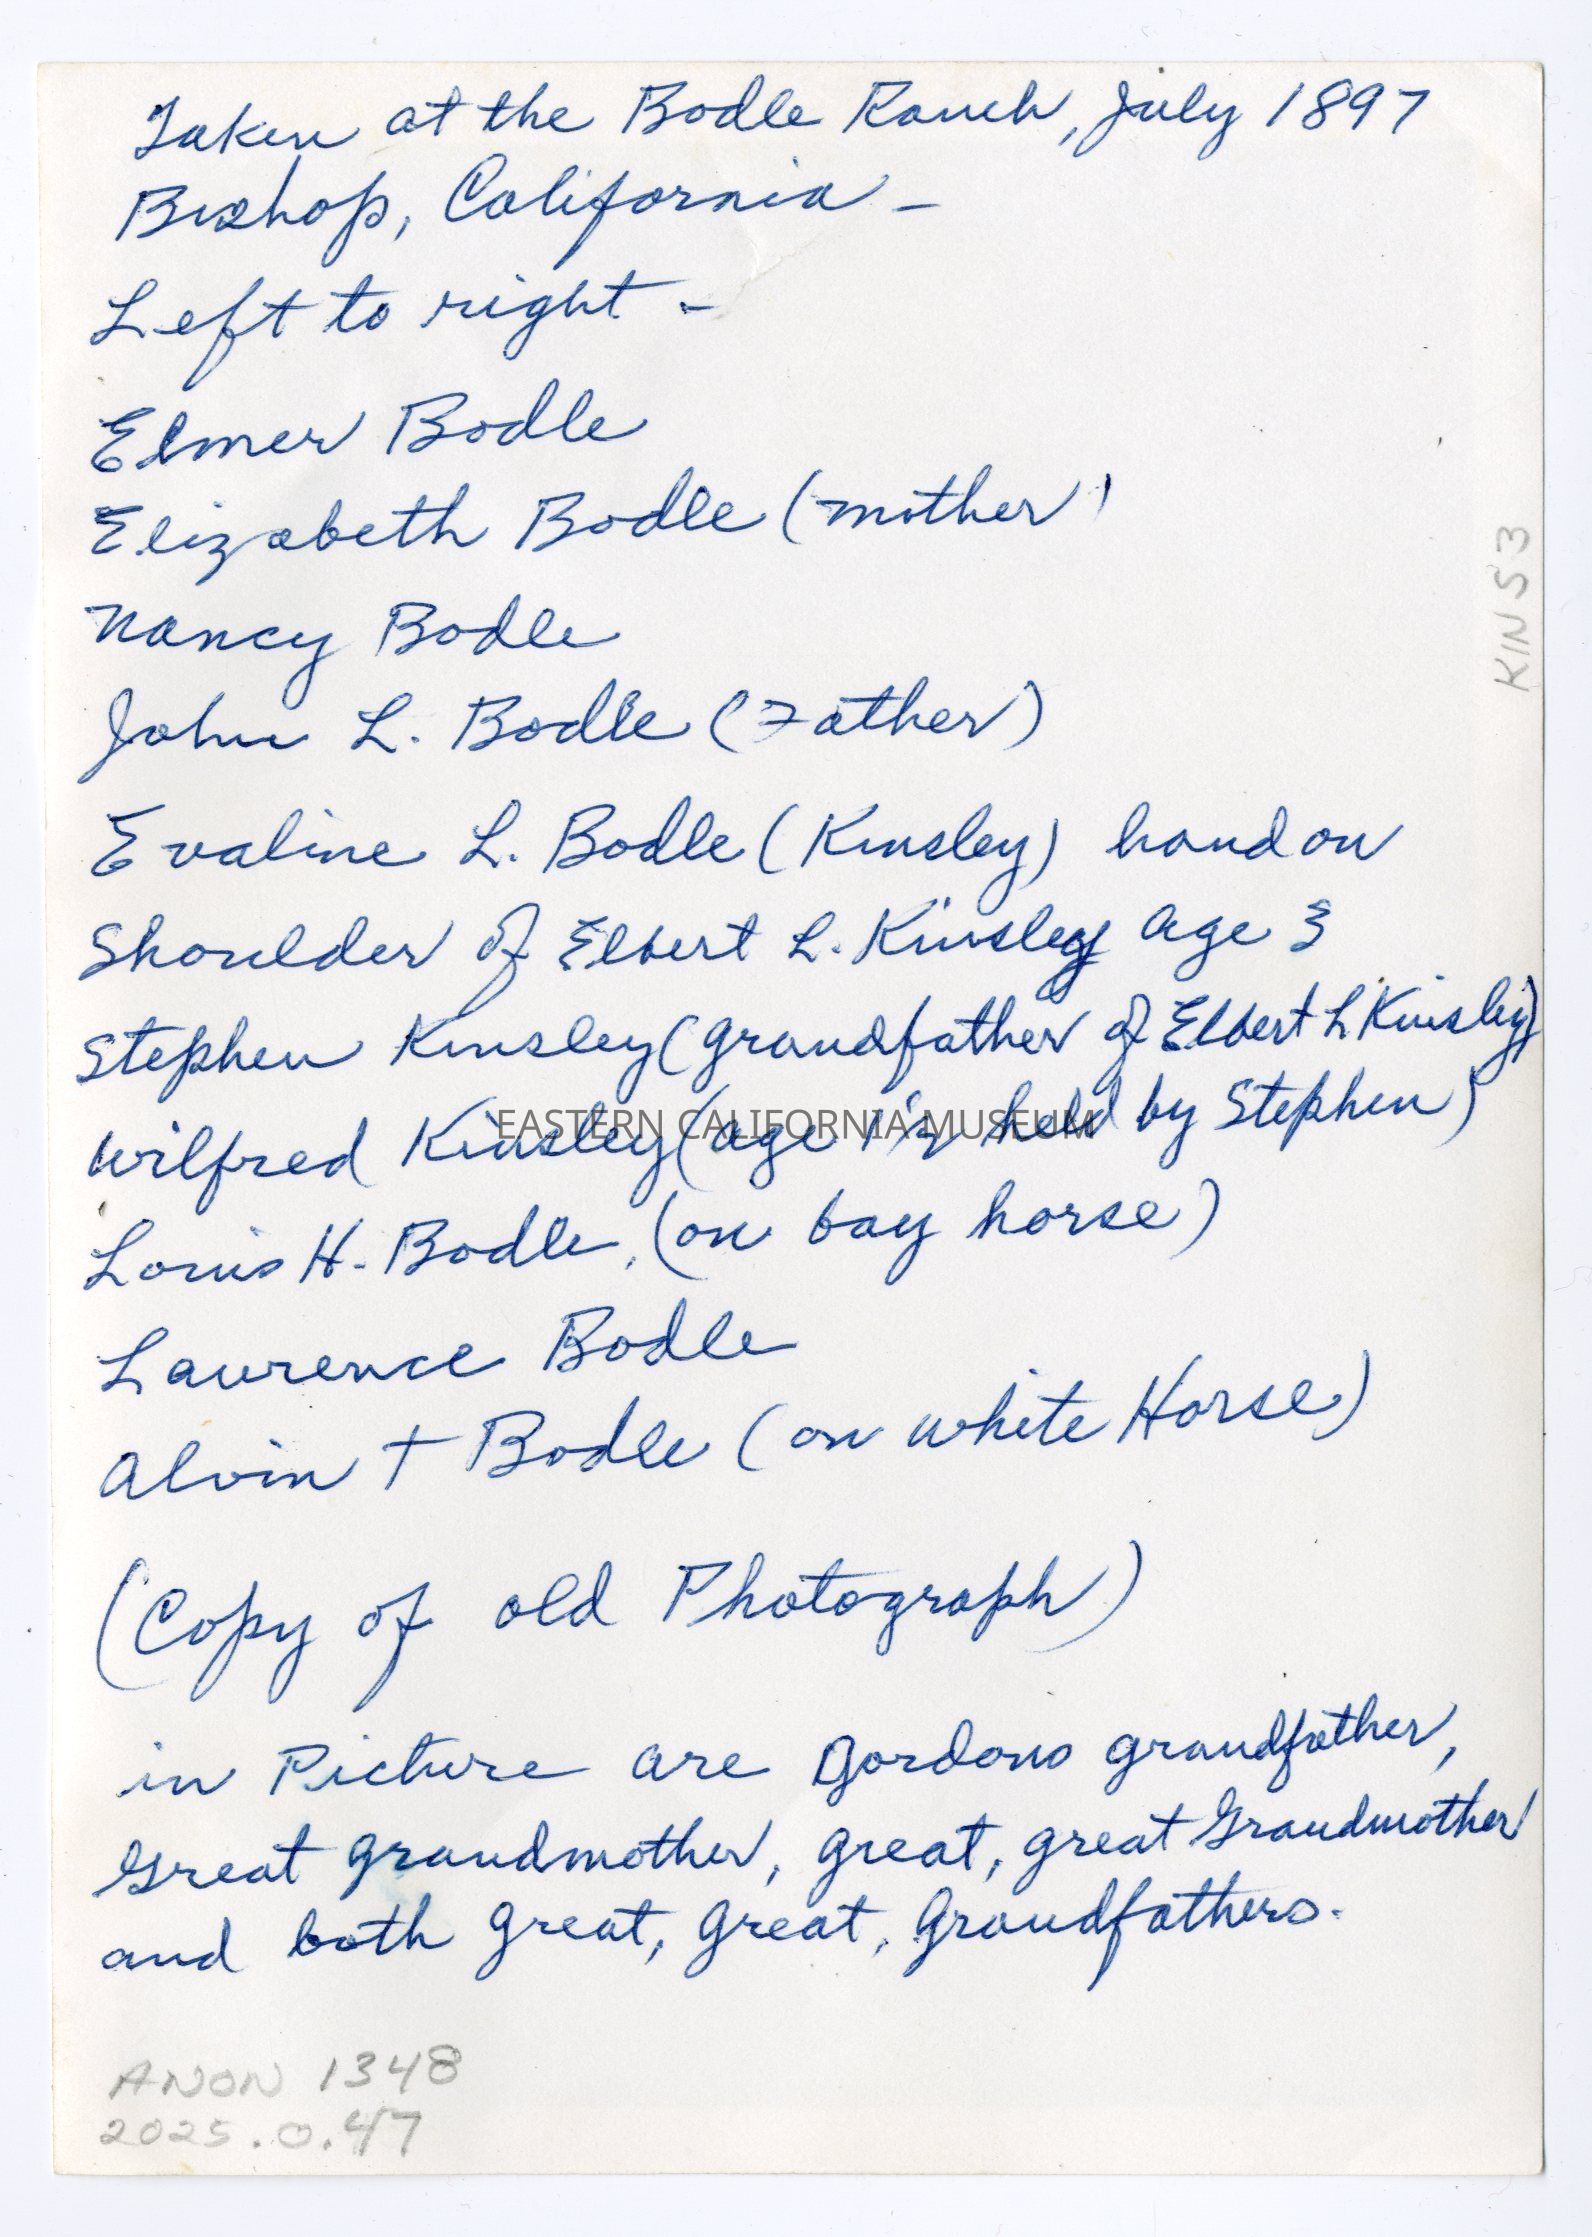 Taken at the Bodle Ranch, July 1897
Bishop, California -
Left to right -
Elmer Bodle
Elizabeth Bodle (mother)
Nancy Bodle
John L. Bodle (Father)
Evaline L. Bodle (Kinsley) hand on
Shoulder of Elbert L. Kinsley age 3
Stephen Kinsley (grandfather of Elbert L Kinsley)
Wilfred Kinsley (age 1½ held by Stephen)
EASTERN CALIFORNIA MUSEUM
Louis H. Bodle, (on bay horse)
Lawrence Bodle
Alvin T Bodle (on white Horse)
(Copy of old Photograph)
in Picture are Gordons grandfather,
Great grandmother, great, great Grandmother
and both great, great, Grandfathers.
ANON 1348
2025.0.47
KINS 3